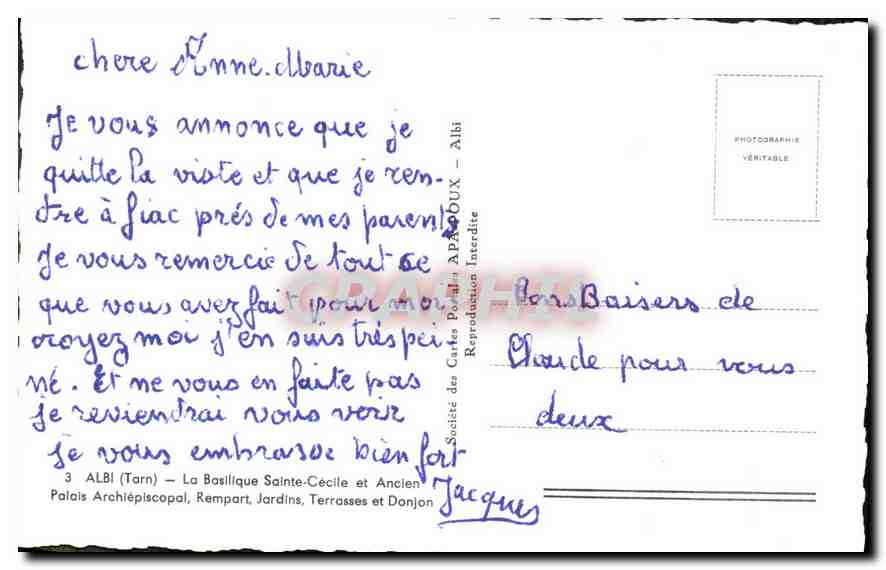 chere Anne-Marie
Je vous annonce que je
quitte la viste et que je ren-
dre à fiac prés de mes parents
Je vous remercie de tout ce
que vous avez fait pour moi
croyez moi j'en suis très pei-
né. Et ne vous en faite pas
je reviendrai vous voir
je vous embrasse bien fort
Jacques
3 ALBI (Tarn) — La Basilique Sainte-Cécile et Ancien
Palais Archiépiscopal, Rempart, Jardins, Terrasses et Donjon
Société des Cartes Postales APA-POUX — Albi
Reproduction Interdite
PHOTOGRAPHIE
VÉRITABLE
Bons Baisers de
Claude pour vous
deux